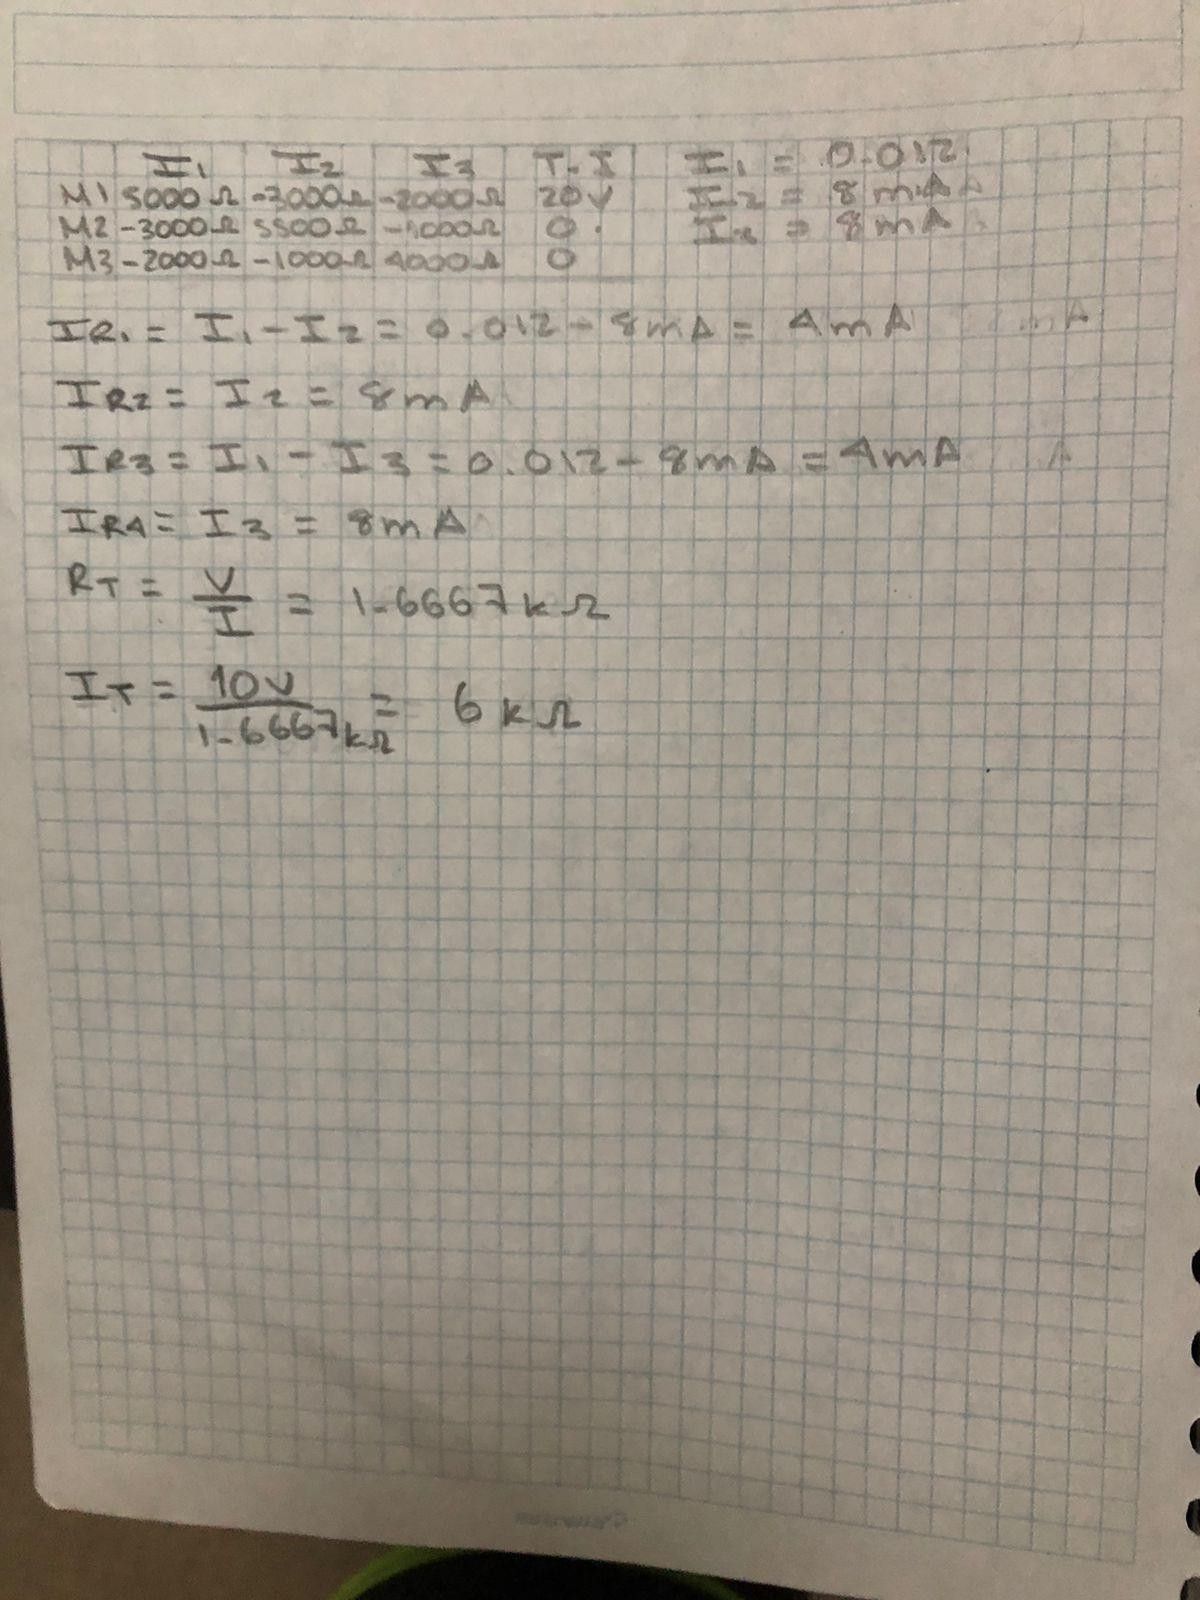 I1 I2 I3 T.I
M1 5000Ω -3000Ω -2000Ω 20V
M2 -3000Ω 5500Ω -1000Ω 0
M3 -2000Ω -1000Ω 4000Ω 0
I1 = 0.012
I2 = 8mA
= 8mA
IR1 = I1 - I2 = 0.012 - 8mA = 4mA
IR2 = I2 = 8mA
IR3 = I1 - I3 = 0.012 - 8mA = 4mA
IR4 = I3 = 8mA
RT = V/I = 1.6667kΩ
IT = 10V/1.6667kΩ = 6kΩ